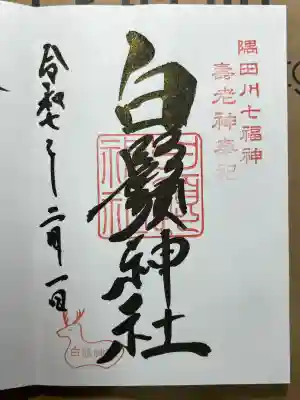 隅田川七福神
壽老神奉祀
白鬚神社
令和七年二月一日
白鬚神社